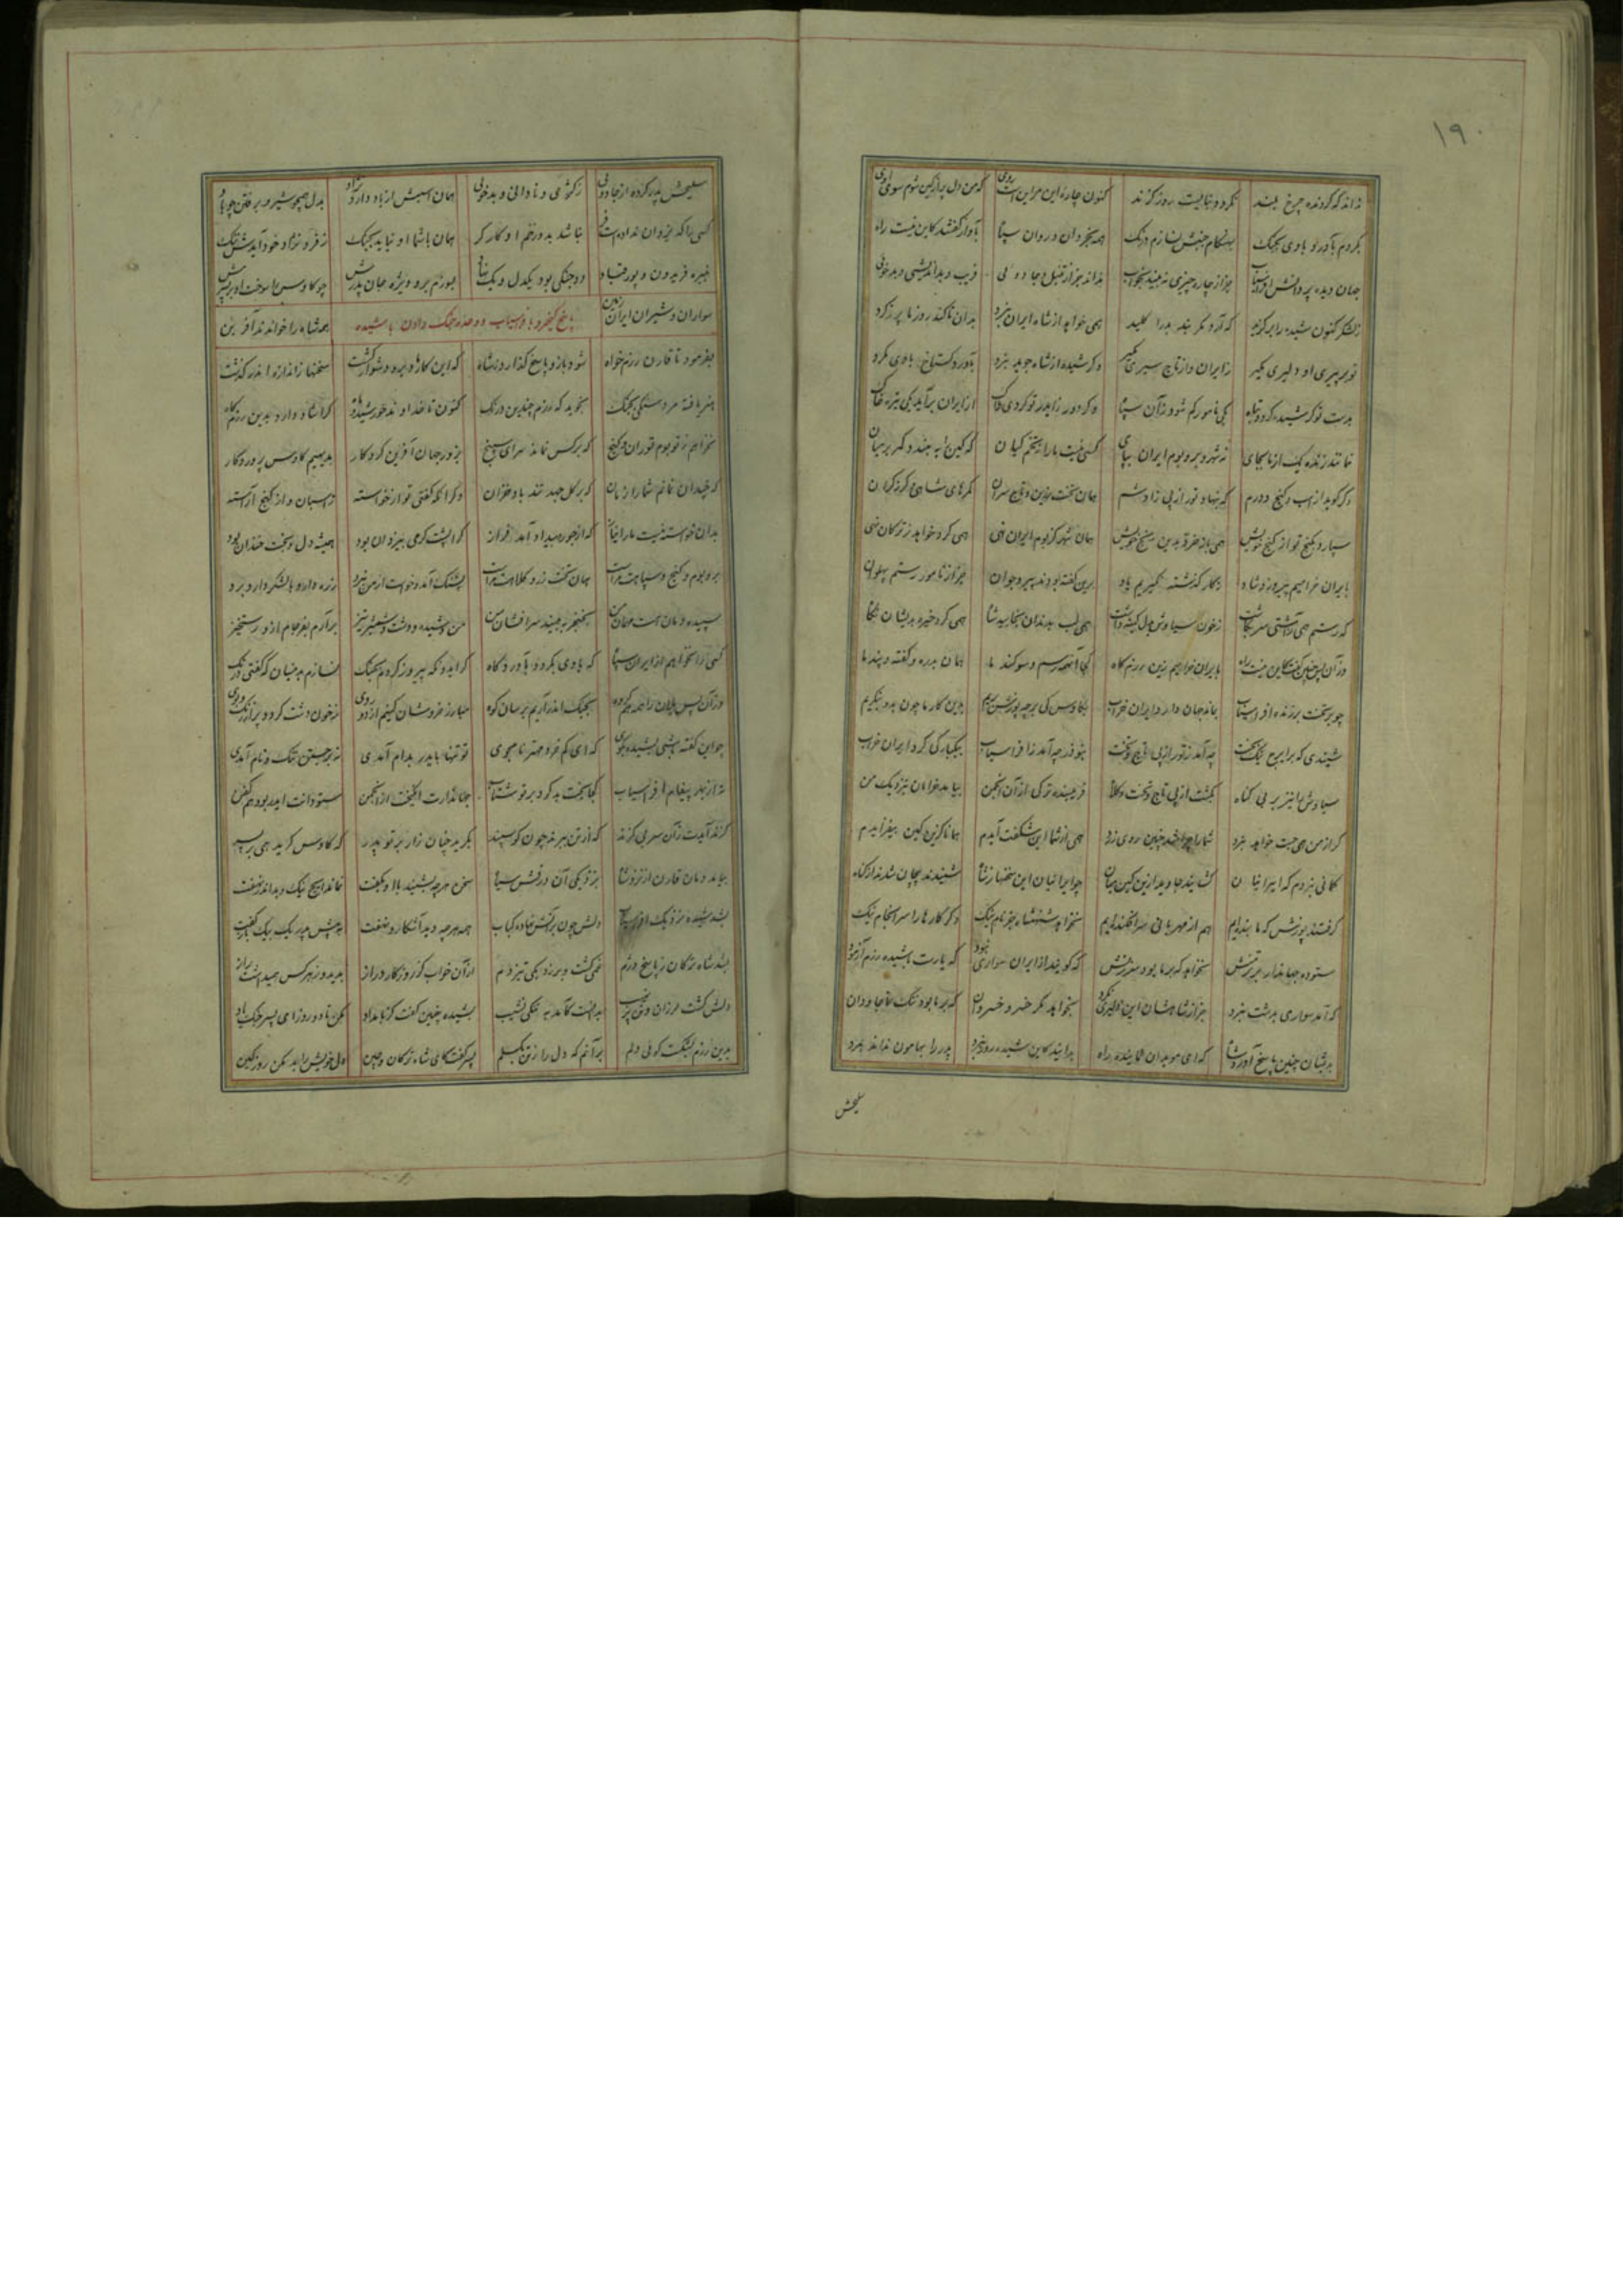 ۱۹۰
کنون چاره این مراین است روی که من دل پر از کین شوم سوی اوی
بگردم بآورد با وی بجنگ بهنگام جنبش نسازم درنگ همه بخردان و روان سپاه بآواز گفتند کاین نیست راه
جهان دیده پر دانش افراسیاب جز از چاره چیزی نه بیند بخواب نداند جز از تنبل و جادوئی فریب و بداندیشی و بدخوئی
ز لشکر کنون شیده را برگزید که آرد مگر بند بد را کلید همی خواهد از شاه ایران نبرد بدان تا کند روز ما پر ز گرد
تو بر تیری او دلیری مگیر ز ایران و از تاج سیری مگیر وگر شیده از شاه جوید نبرد بآورد گستاخ با وی مگرد
بدست تو گر شیده گردد تباه یکی نامور کم شود زآن سپاه وگر دور از ایدر تو گردی هلاک از ایران برآید یکی تیره خاک
نماند زنده یک از ما بجای نه شهر و بر و بوم ایران بپای کسی نیست ما را ز تخم کیان که کین را به بندد کمر بر میان
وگر گوید از اسب و گنج و درم که بنهاد تور از پی زادشم همان تخت زرین و تاج سران کمرهای شاهی و گرز گران
سپارد بگنج تو از گنج خویش همی باز خرد بدین رنج خویش همان شهر کز بوم ایران نهی همی کرد خواهد ز ترکان تهی
بایران خرامیم پیروز و شاد ز کار گذشته نگیریم یاد برین گفته بودند پیر و جوان جز از نامور رستم پهلوان
که رستم همی زآشتی سر بگاشت ز خون سیاوش بدل کینه داشت همی لب بدندان بخایید شاه همی کرد خیره بدیشان نگاه
وزآن پس چنین گفت کاین نیست راه بایران خرامیم زین رزمگاه کجا آنهمه رسم و سوگند ما همان بدره و گفته و پند ما
چو بر تخت بر زنده افراسیاب بماند جهان دارد ایران خراب بکاوس کی بر چه پوزش بریم بدین کار ما چون بدو بنگریم
شنیدی که بر ایرج نیکبخت چه آمد ز تور از پی تاج و تخت بنوذر چه آمد ز افراسیاب بیکبارگی کرد ایران خراب
سیاوش را نیز بر بی گناه بکشت از پی تاج و تخت و کلاه فریبنده ترکی از آن انجمن بیامد خرامان بنزدیک من
گر از من همی جست خواهد نبرد شما را چرا شد چنین روی زرد همی از شما این شگفت آیدم همانا کزین کین بیفزایدم
گمانی نبردم که ایرانیان گشایند جاوید ازین کین میان چو ایرانیان این سخنها ز شاه شنیدند پیچان شدند از گناه
گرفتند پوزش که ما بنده‌ایم هم از مهربانی سرافکنده‌ایم نخواهد شهنشاه جز نام نیک وگر کارها را سرانجام نیک
ستوده جهاندار برتر منش نخواهد که بر ما بود سرزنش که گویند از ایران سواری نبود که یارست با شیده رزم آزمود
که آمد سواری بدشت نبرد جز از شاهشان این دلیری نکرد نخواهد مگر خسرو خسروان که بر ما بود ننگ تا جاودان
بدیشان چنین پاسخ آورد شاه که ای موبدان نماینده راه بدانید کاین شیده روز نبرد پدر را بهامون نداند بمرد
سلیحش
سلیحش پدر کرده از جادوئی ز کژی و نادانی و بدخوئی همان اسبش از باد دارد نژاد بدل همچو شیر و برفتن چو باد
کسی را که یزدان ندادست فر نباشد بدو زخم او کارگر همان با شما او نیاید بجنگ ز فر و نژاد خود آیدش ننگ
نبیره فریدون و پور قباد دو جنگی بود یکدل و یک نهاد بسوزم برو ویژه جان پدرش چو کاوس را سوخت او بر پسرش
سواران و شیران ایران زمین
پاسخ کیخسرو بافراسیاب و وعده جنگ دادن باشیده
همه شاه را خواندند آفرین
بفرمود تا قارن رزم خواه شود باز و پاسخ گذارد ز شاه که این کار دیر و دشوار گشت سخنها ز اندازه اندر گذشت
هنر یافته مرد سنگی بجنگ نجوید که رزم چندین درنگ کنون تا خداوند خورشید و ماه کرا شاد دارد بدین رزمگاه
نخواهم ز تو بوم توران و گنج که بر کس نماند سرای سپنج بزور جهان آفرین کردگار بدیهیم کاوس پروردگار
که چندان نمانم شما را زمان که بر گل جهد تند باد خزان وگر آنکه گفتی تو از خواسته ز اسبان و از گنج آراسته
بدان خواسته نیست ما را نیاز که از جور و بیداد آمد فراز کرا پشت گرمی بیزدان بود همیشه دل و بخت خندان بود
بر و بوم و گنج و سپاهت مراست همان تخت زر و کلاهت مراست پشنگ آمد و خواست از من نبرد زره دار و با لشکر و دار و برد
سپیده دمان هست مهمان من بخنجر به بیند سر افشان من من و شیده و دشت و شمشیر تیز برآرم بفرجام ازو رستخیز
کسی را نخواهم از ایران سپاه که با وی بگردد بآوردگاه گر ایدونکه پیروز گردم بجنگ نسازم بدینسان که گفتی درنگ
وزآن پس یلان را همه همگروه بجنگ اندر آریم برسان کوه
چو این گفته باشی بشیده بگوی که ای کم خرد مهتر نامجوی تو تنها بایدر بدام آمدی نه بر جستن ننگ و نام آمدی
نه از بهر پیغام افراسیاب کجا بخت بد کرد بر تو شتاب جهاندارت انگیخت از انجمن ستودانت ایدر بود هم کفن
گزند آیدت زآن سر بی گزند که از تن بریدند چون گوسپند بگرید چنان زار بر تو پدر که کاوس گرید همی بر پسر
بیامد دمان قارن از نزد شاه بنزدیکی آن درفش سیاه سخن هر چه بشنید با او بگفت نماند ایچ نیک و بد اندر نهفت
بشد شیده نزدیک افراسیاب دلش چون بر آتش نهاده کباب همه هر چه دید آشکار و نهفت به پیش پدر یک بیک باز گفت
بشد شاه ترکان ز پاسخ دژم غمی گشت و بر زد یکی تیز دم از آن خواب کز روزگار دراز بدید و ز هر کس همیداشت راز
دلش گشت لرزان و تن پر نهیب بدانست کآمد به تنگی نشیب بشیده چنین گفت کز بامداد مکن تا دو روز ای پسر جنگ یاد
بدین رزم بشکست گوئی دلم برآنم که دل را ز تن بگسلم پسر گفت کای شاه ترکان و چین دل خویش را بد مکن روز کین